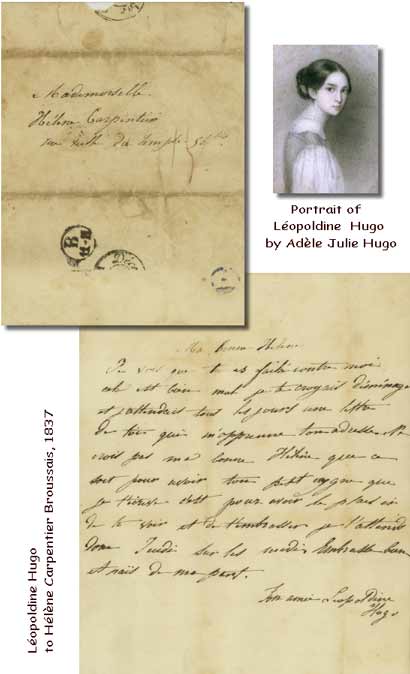 Mademoiselle
Hélène Carpentier
rue Vieille du Temple
B
Portrait of
Léopoldine Hugo
by Adèle Julie Hugo
Léopoldine Hugo
to Hélène Carpentier Broussais, 1837
Ma bonne Hélène
Je vois que tu es fâchée contre moi
cela est bien mal je te croyais déménagée
et j'attendais tous les jours une lettre
de toi qui m'apprenne ton adresse. Ne
crois pas ma bonne Hélène que ce
soit pour avoir ton petit que
je c'est pour avoir le plaisir
de te voir et de t'embrasser je t'attends
donc Jeudi sur les midi Embrasse
de ma part.
Ton amie Léopoldine
Hugo